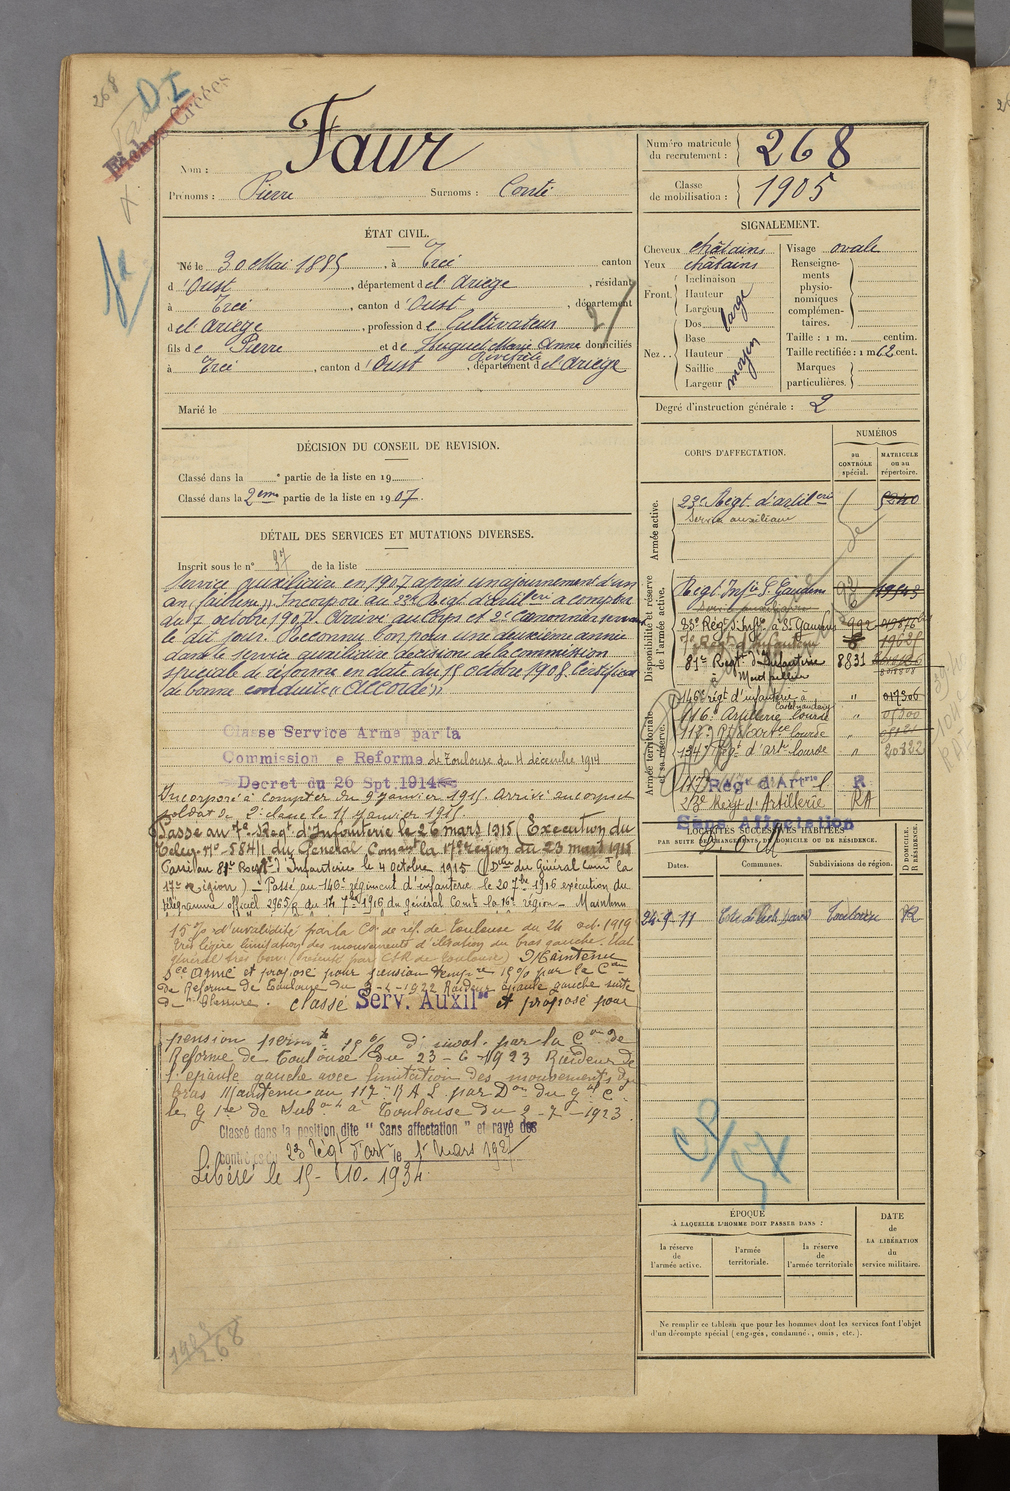 268
DI
Fiches Créées
Nom : Faur
Prénoms : Pierre Surnoms : Conté
Numéro matricule du recrutement : 268
Classe de mobilisation : 1905
ÉTAT CIVIL.
Né le 30 Mai 1885, à Ercé canton
d'Oust, département de l'Ariège, résidant
à Ercé, canton d'Oust, département
de l'Ariège, profession de Cultivateur
fils de Pierre et de Huguet Marie Anne domiciliés
à Ercé, canton d'Oust, département de l'Ariège
Marié le
SIGNALEMENT.
Cheveux châtains
Yeux châtains
Front. Inclinaison
Hauteur
Largeur
Dos
large
Nez. Base
Hauteur
Saillie
Largeur
moyen
Visage ovale
Renseigne-
ments
physio-
nomiques
complémen-
taires.
Taille : 1 m. centim.
Taille rectifiée : 1 m 62 cent.
Marques
particulières.
Degré d'instruction générale : 2
DÉCISION DU CONSEIL DE REVISION.
Classé dans la e partie de la liste en 19
Classé dans la 2eme partie de la liste en 1907.
DÉTAIL DES SERVICES ET MUTATIONS DIVERSES.
Inscrit sous le n° 37 de la liste
Service auxiliaire en 1907 après un ajournement d'un
an (faiblesse). Incorporé au 23e Régt. d'artillerie à compter
du 7 octobre 1907. Arrivé au corps et 2e Canonnier servant
le dit jour. Reconnu bon pour une deuxième année
dans le service auxiliaire décision de la commission
spéciale de réforme en date du 15 octobre 1908. Certificat
de bonne conduite "Accordé"
Classé Service Armé par la
Commission de Reforme de Toulouse du 11 décembre 1914
Decret du 26 Spt. 1914
Incorporé à compter du 9 janvier 1915. Arrivé au corps et
soldat de 2e classe le 11 janvier 1915.
Passé au 7e Régt d'Infanterie le 26 mars 1915 (Execution du
Teleg. N° 5841 du General Comant la 17e région du 23 mars 1915
Passé au 81e Regt d'Infanterie le 4 Octobre 1915 (Don du Général Comt la
17e Région) - Passé au 146e régiment d'infanterie le 20 7bre 1916 exécution du
télégramme officiel 2965/R du 14 7bre 1916 du général Comt la 16e région - Maintenu
15 % d'invalidité par la Con de réf. de Toulouse du 24 oct. 1919
très légère limitation des mouvements d'élévation du bras gauche. Etat
général très bon. Maintenu
Sce Armé et proposé pour pension tempre 15 % par la Con
de Réforme de Toulouse du 3-4-1922 Raideur épaule gauche suite
de blessure. classé Serv. Auxil re et proposé pour
pension permte 15 % d'inval. par la Con de
Réforme de Toulouse du 23-6-1923 Raideur de
l'épaule gauche avec limitation des mouvements du
bras Maintenu au 117e R A L par Don du Gal Ct
le G 1re de Subon à Toulouse du 2-7-1923.
Classé dans la position dite "Sans affectation" et rayé des
contrôles du 23 Régt d'art le 1r Mars 1927
Libéré le 15-10-1934
1905
268
CORPS D'AFFECTATION.
NUMÉROS
au CONTRÔLE spécial.
MATRICULE ou au répertoire.
Armée active.
23e Régt. d'artillerie
Service auxiliaire
Disponibilité et réserve de l'armée active.
Régt Infie St Gaudens
Service auxiliaire
7e Régt d'Infanterie
81e Regt d'Infanterie 8831
à Montpellier
Armée territoriale et sa réserve.
146e régt d'infanterie à "
Castelnaudary
116e Artillerie lourde "
117e Artillerie lourde "
134e Régt d'art lourde " 20322
Régt d'Artrie l. R
23e Régt d'Artillerie RA
Sans Affectation
LOCALITÉS SUCCESSIVES HABITÉES
PAR SUITE DE CHANGEMENTS DE DOMICILE OU DE RÉSIDENCE.
Dates. Communes. Subdivisions de région. D DOMICILE. R RÉSIDENCE.
24-9-11 Toulouse R
CP/57
ÉPOQUE
A LAQUELLE L'HOMME DOIT PASSER DANS :
la réserve de l'armée active.
l'armée territoriale.
la réserve de l'armée territoriale
DATE de LA LIBÉRATION du service militaire.
Ne remplir ce tableau que pour les hommes dont les services font l'objet
d'un décompte spécial (engagés, condamnés, omis, etc.).